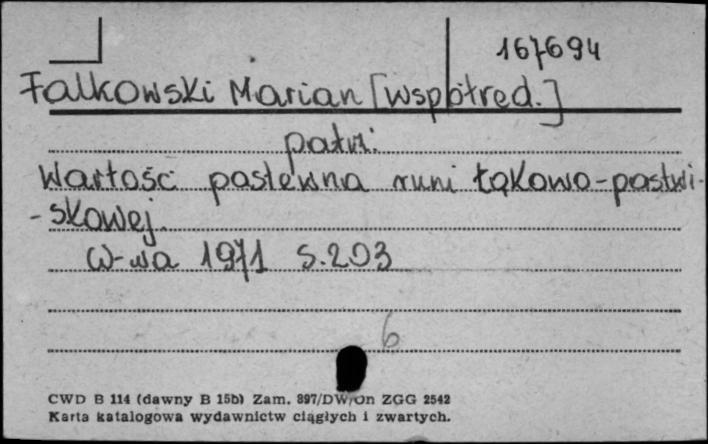 167694
Falkowski Marian [współred.]
patrz:
Wartość pastewna runi łąkowo-pastwi-
-skowej.
W-wa 1971 s.203
6
CWD B 114 (dawny B 15b) Zam. 897/DW/On ZGG 2542
Karta katalogowa wydawnictw ciągłych i zwartych.